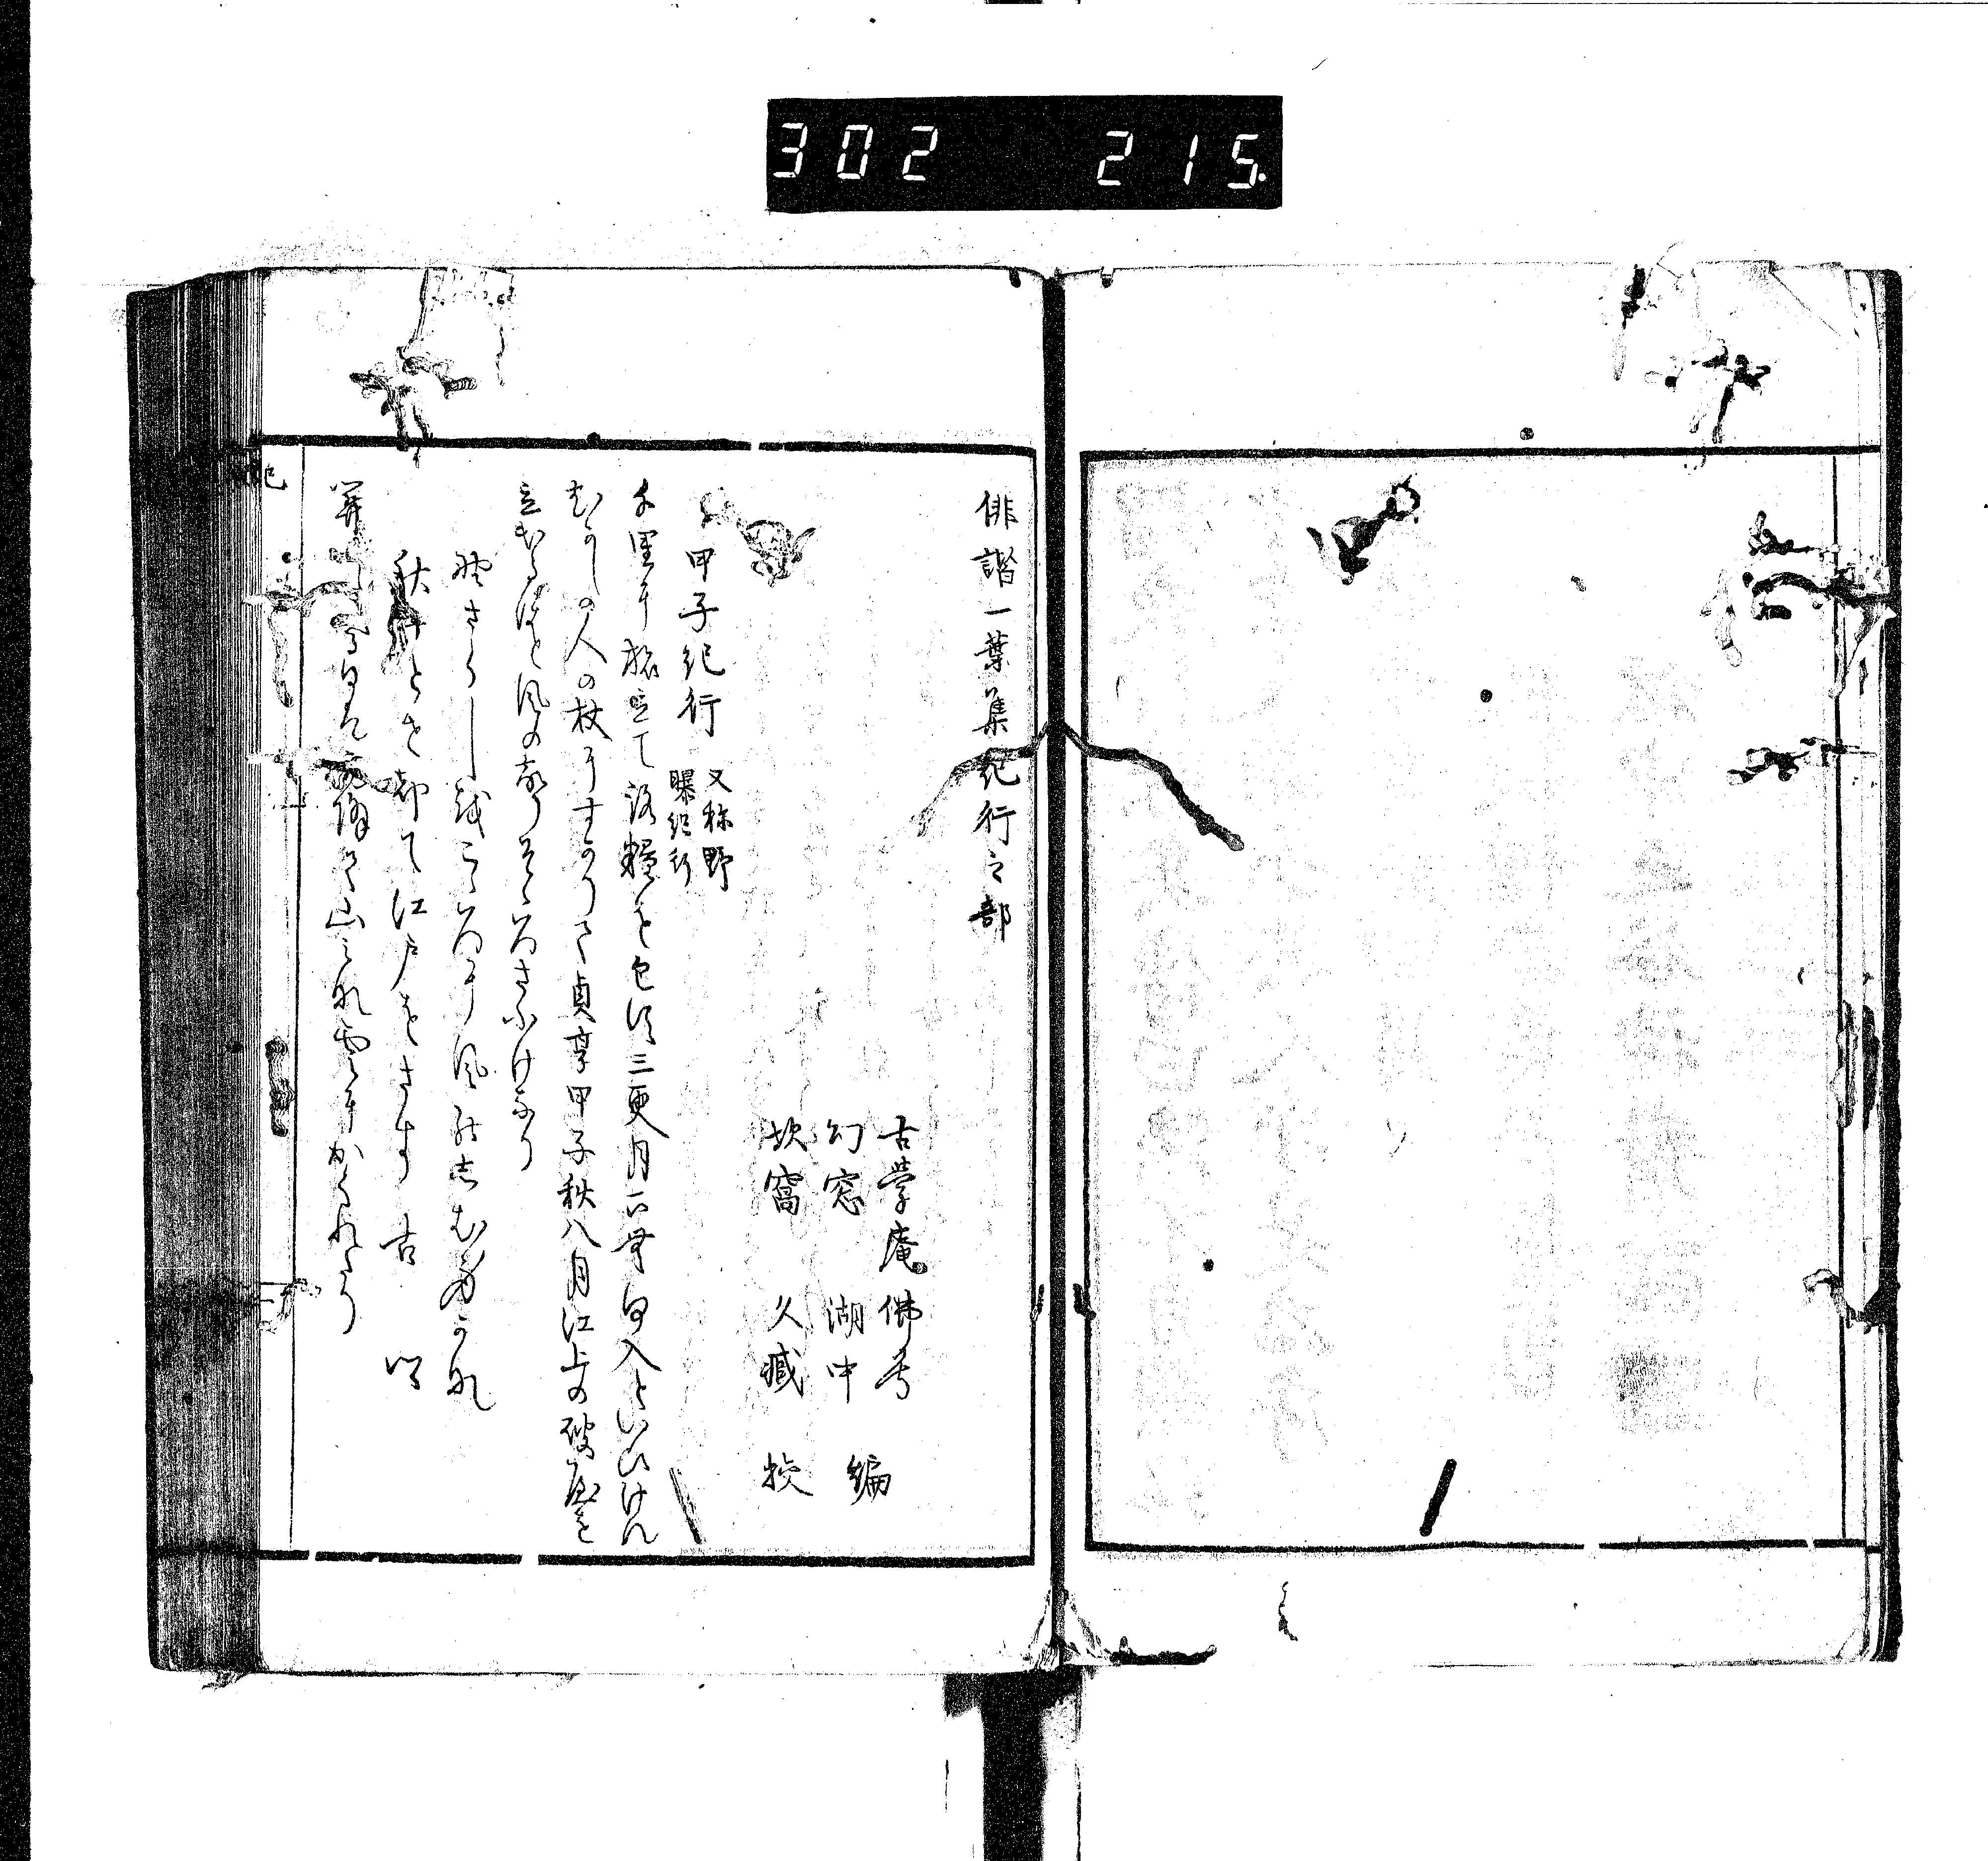 302 215
俳諧一葉集紀行之部
古学庵佛兮
幻窓湖中
編
坎窩久臧 挍
甲子紀行
又称野
曝紀行
千里に旅立て路粮を包ます三更月下無何入といひけん
むかしの人の杖にすかりて貞享甲子秋八月江上の破屋を
立出るほと風の声そゝろさふけなり
野さらしを心に風のしむ身かな
秋十とせ却て江戸をさす古郷
関こゆる日は雨降て山みな雲にかくれたり
紀